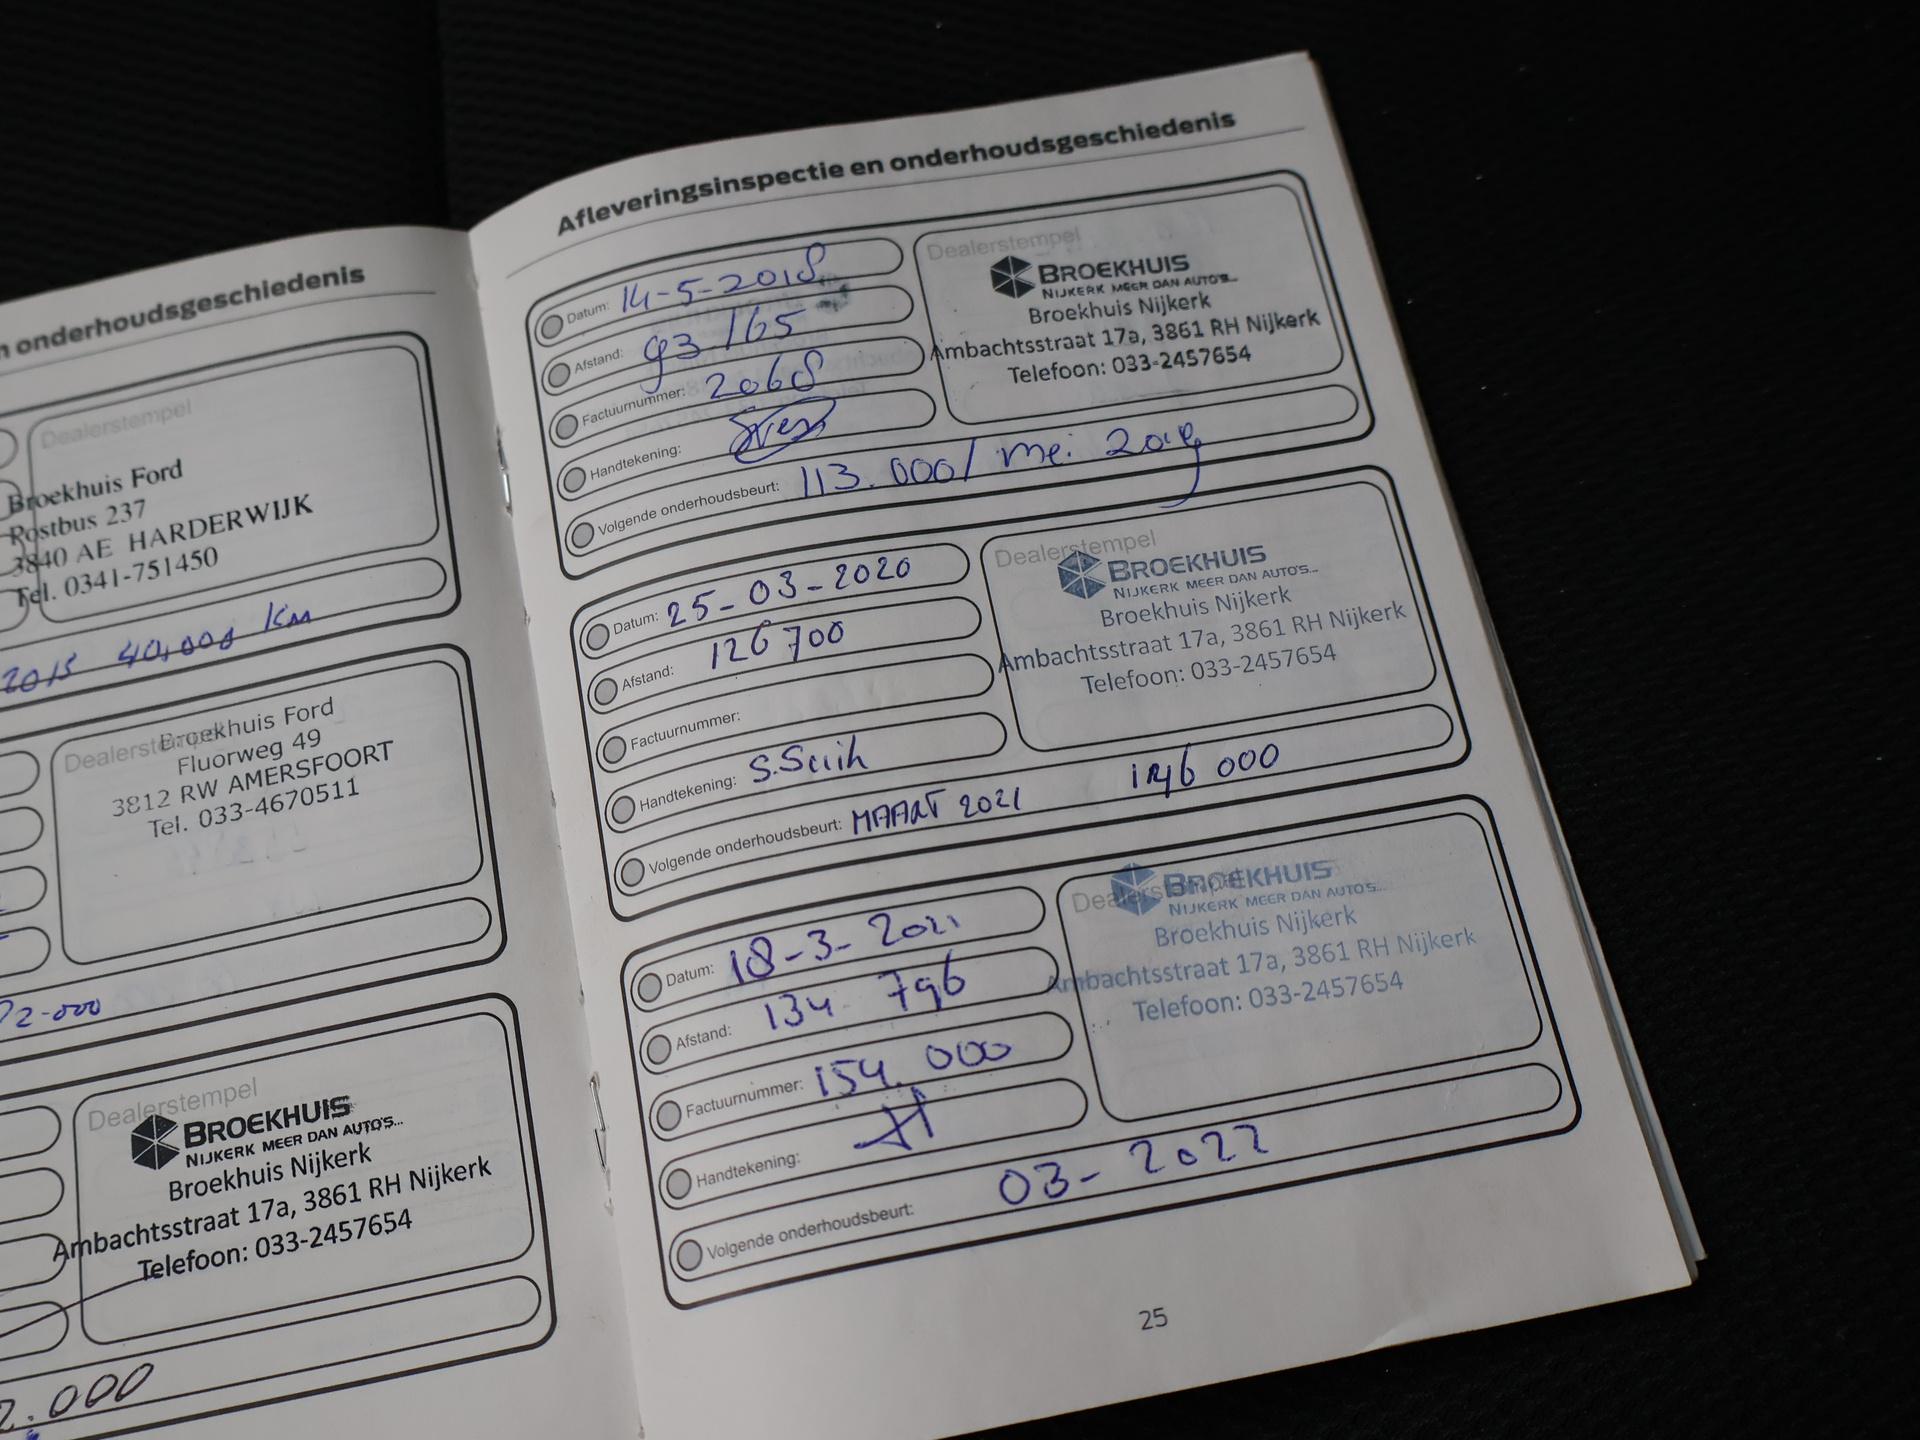 n onderhoudsgeschiedenis
Dealerstempel
Broekhuis Ford
Postbus 237
3840 AE HARDERWIJK
Tel. 0341-751450
2015 40.000 km
Dealerstempel
Broekhuis Ford
Fluorweg 49
3812 RW AMERSFOORT
Tel. 033-4670511
2-000
Dealerstempel
BROEKHUIS
NIJKERK MEER DAN AUTO'S...
Broekhuis Nijkerk
Ambachtsstraat 17a, 3861 RH Nijkerk
Telefoon: 033-2457654
2.000
Afleveringsinspectie en onderhoudsgeschiedenis
Datum: 14-5-2018
Afstand: 93165
Factuurnummer: 2068
Handtekening:
Volgende onderhoudsbeurt: 113.000/ mei 2019
Dealerstempel
BROEKHUIS
NIJKERK MEER DAN AUTO'S...
Broekhuis Nijkerk
Ambachtsstraat 17a, 3861 RH Nijkerk
Telefoon: 033-2457654
Datum: 25-03-2020
Afstand: 126700
Factuurnummer:
Handtekening:
Volgende onderhoudsbeurt: MAART 2021 146 000
Dealerstempel
BROEKHUIS
NIJKERK MEER DAN AUTO'S...
Broekhuis Nijkerk
Ambachtsstraat 17a, 3861 RH Nijkerk
Telefoon: 033-2457654
Datum: 18-3-2021
Afstand: 134 796
Factuurnummer: 154.000
Handtekening:
Volgende onderhoudsbeurt: 03-2022
Dealerstempel
BROEKHUIS
NIJKERK MEER DAN AUTO'S...
Broekhuis Nijkerk
Ambachtsstraat 17a, 3861 RH Nijkerk
Telefoon: 033-2457654
25